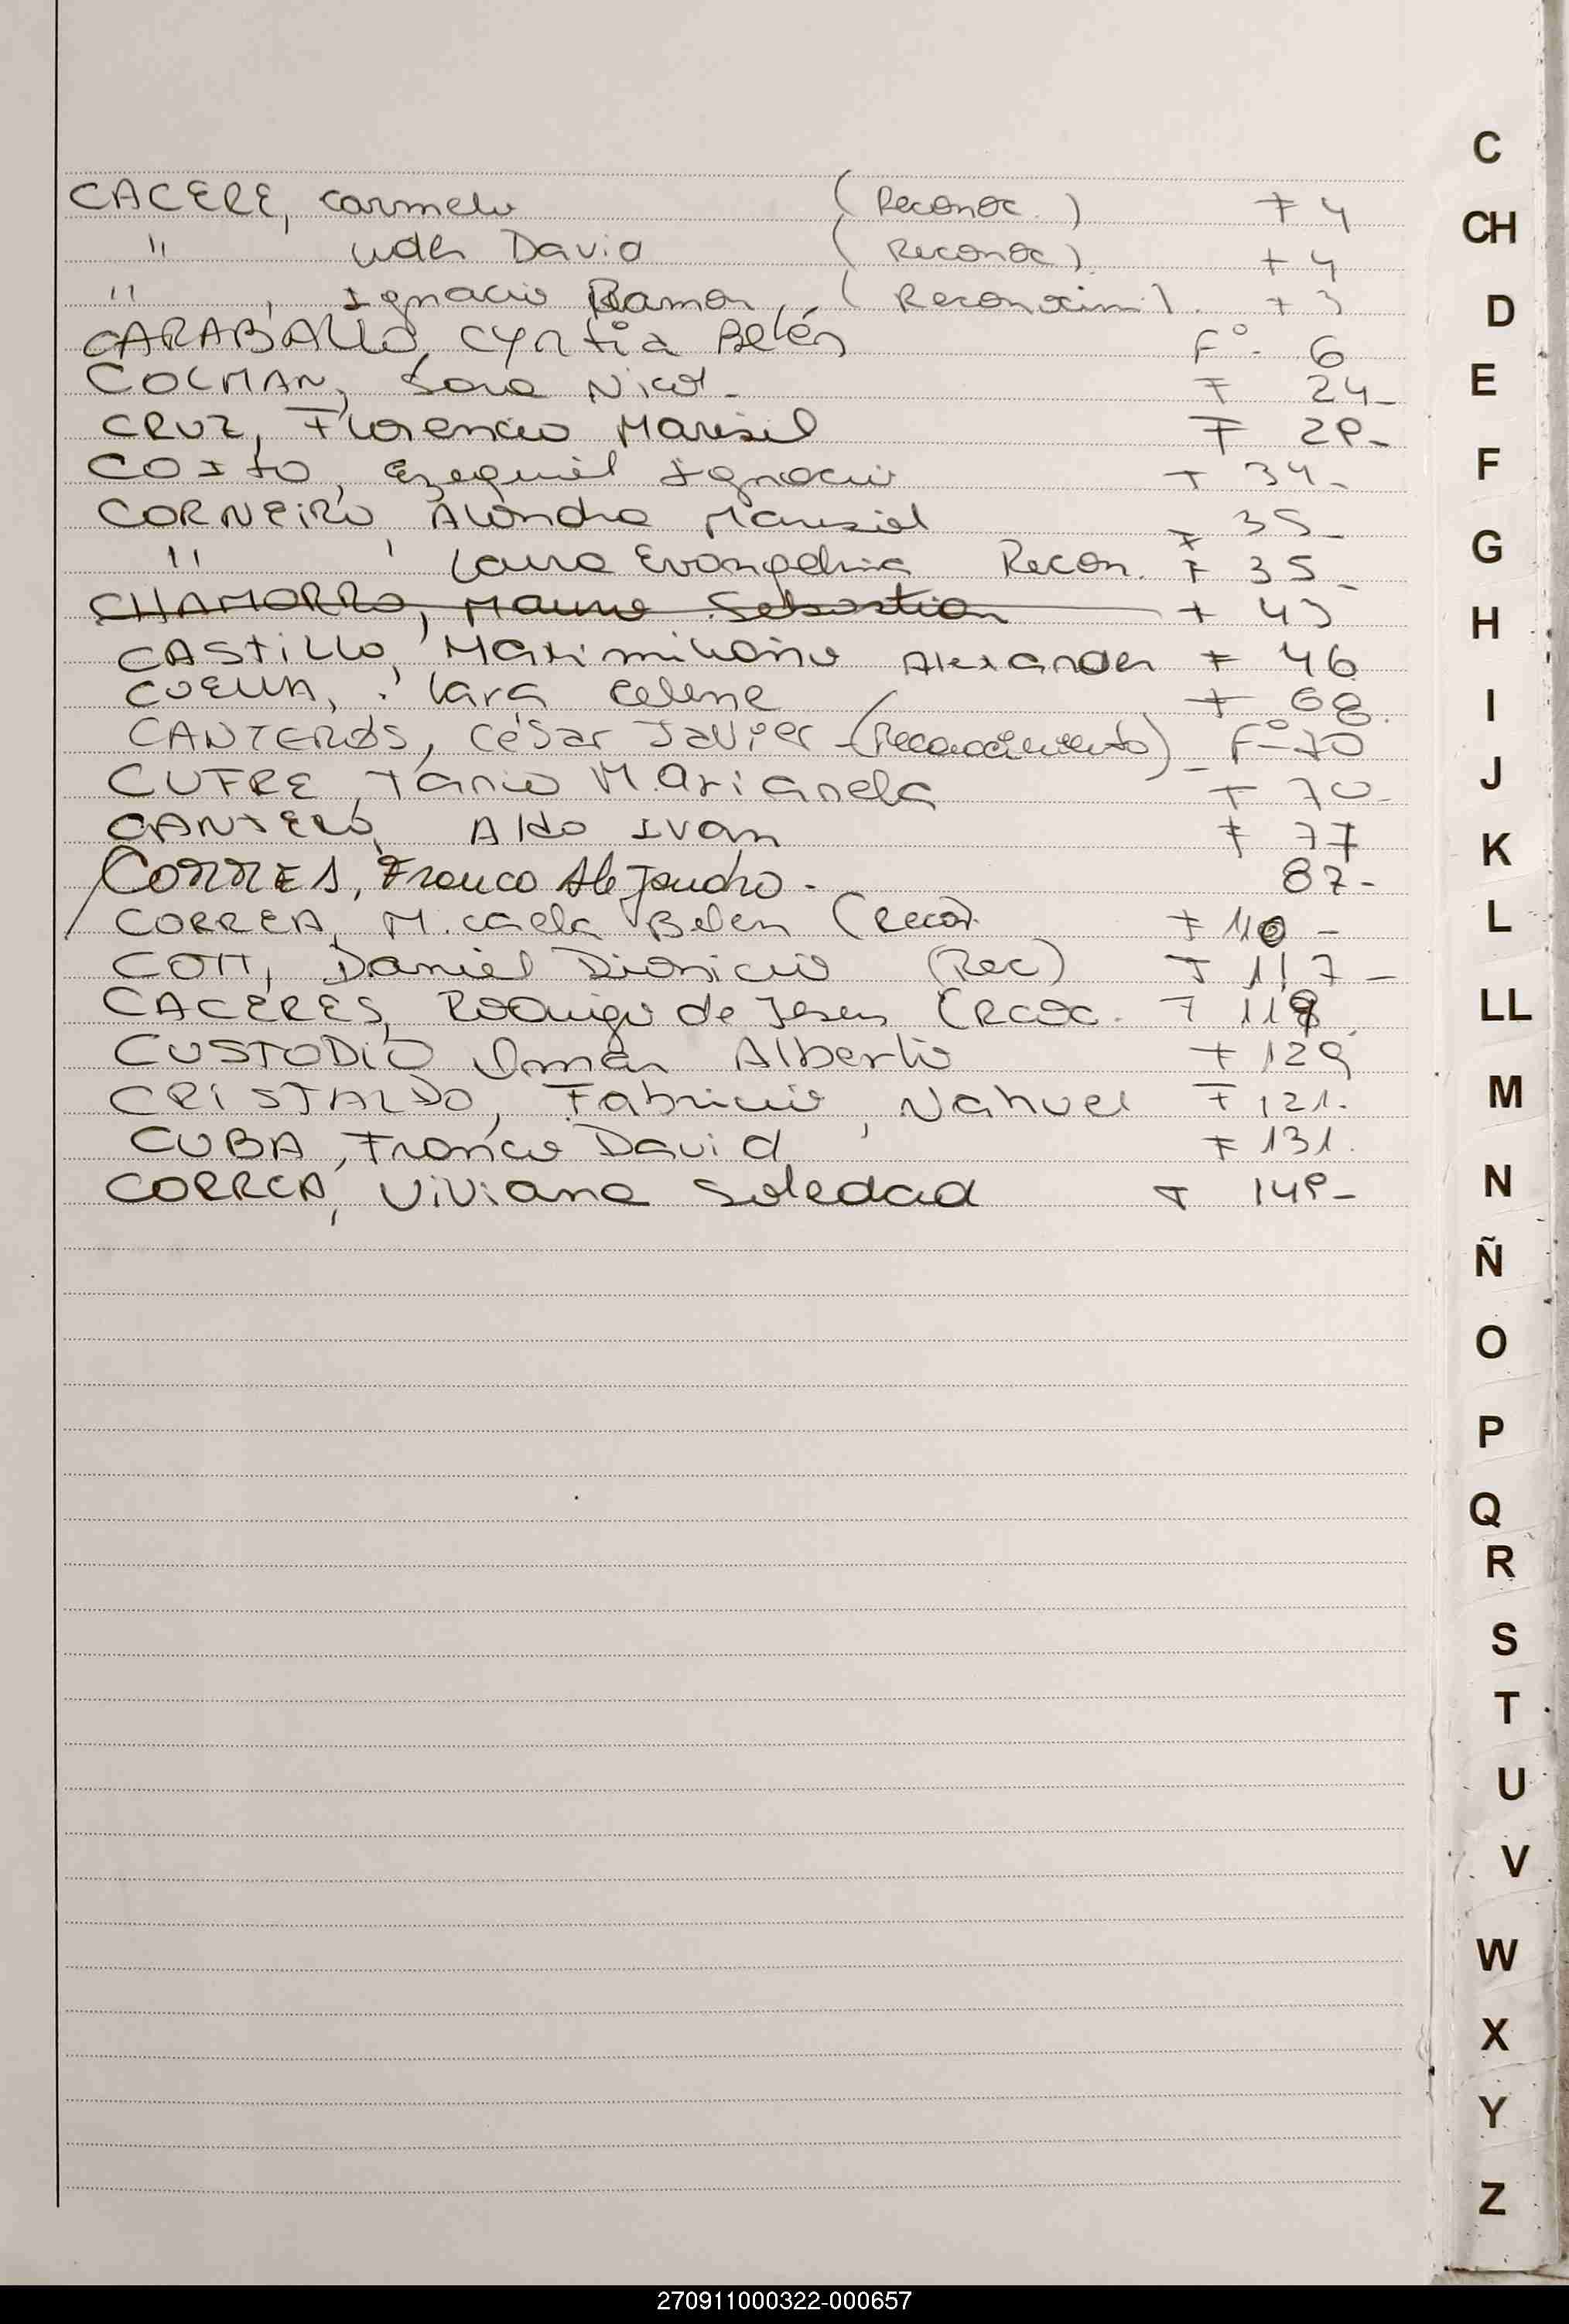 CACERE, Carmelo (Reconoc.) F 4
" David (Reconoc) F 4
" , Ignacio Ramon, (Reconocim). F 3
CARABALLO, Cyntia Belén Fº. 6
COLMAN, Sara Nicol - F 24_
CRUZ, Florencio Marisel F 28_
, Ezequiel Ignacio F 34_
CORNEIRO, Alondra Marisel F 35_
" , Laura Evangelina Recon. F 35_
CHAMORRO, Mauro Sebastian F 43
CASTILLO, Maximiliano Alexander F 46
Lara Celene F 68.
CANTEROS, César Javier (Reconocimiento)_ Fº 70
CUFRE, Tania Marianela F 70_
CANTERO, Aldo Ivan F 77
Franco Alejandro. 87-
CORREA, Micaela Belen (Recon. F 110 -
Daniel Dionicio (Rec) F 117 -
CACERES, Rodrigo de Jesus (Recoc. F 118.
CUSTODIO Omar Alberto F 129
CRISTALDO, Fabricio, Nahuel F 121.
CUBA, Franco David F 131.
CORREA, Viviana Soledad F 148-
C
CH
D
E
F
G
H
I
J
K
L
LL
M
N
Ñ
O
P
Q
R
S
T
U
V
W
X
Y
Z
270911000322-000657